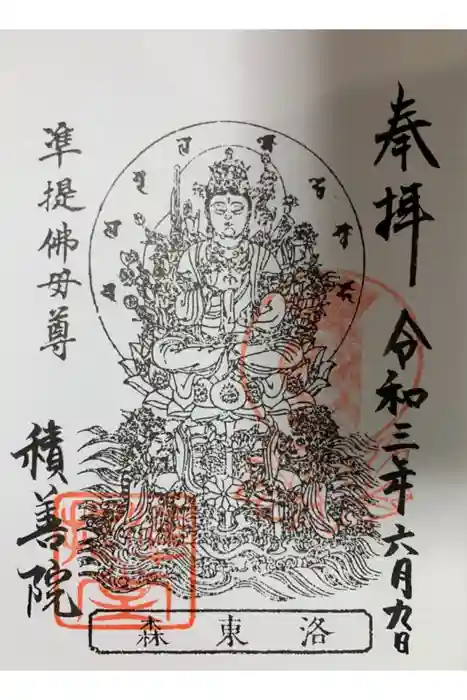 奉拝
令和三年六月九日
準提佛母尊
積善院
森東洛